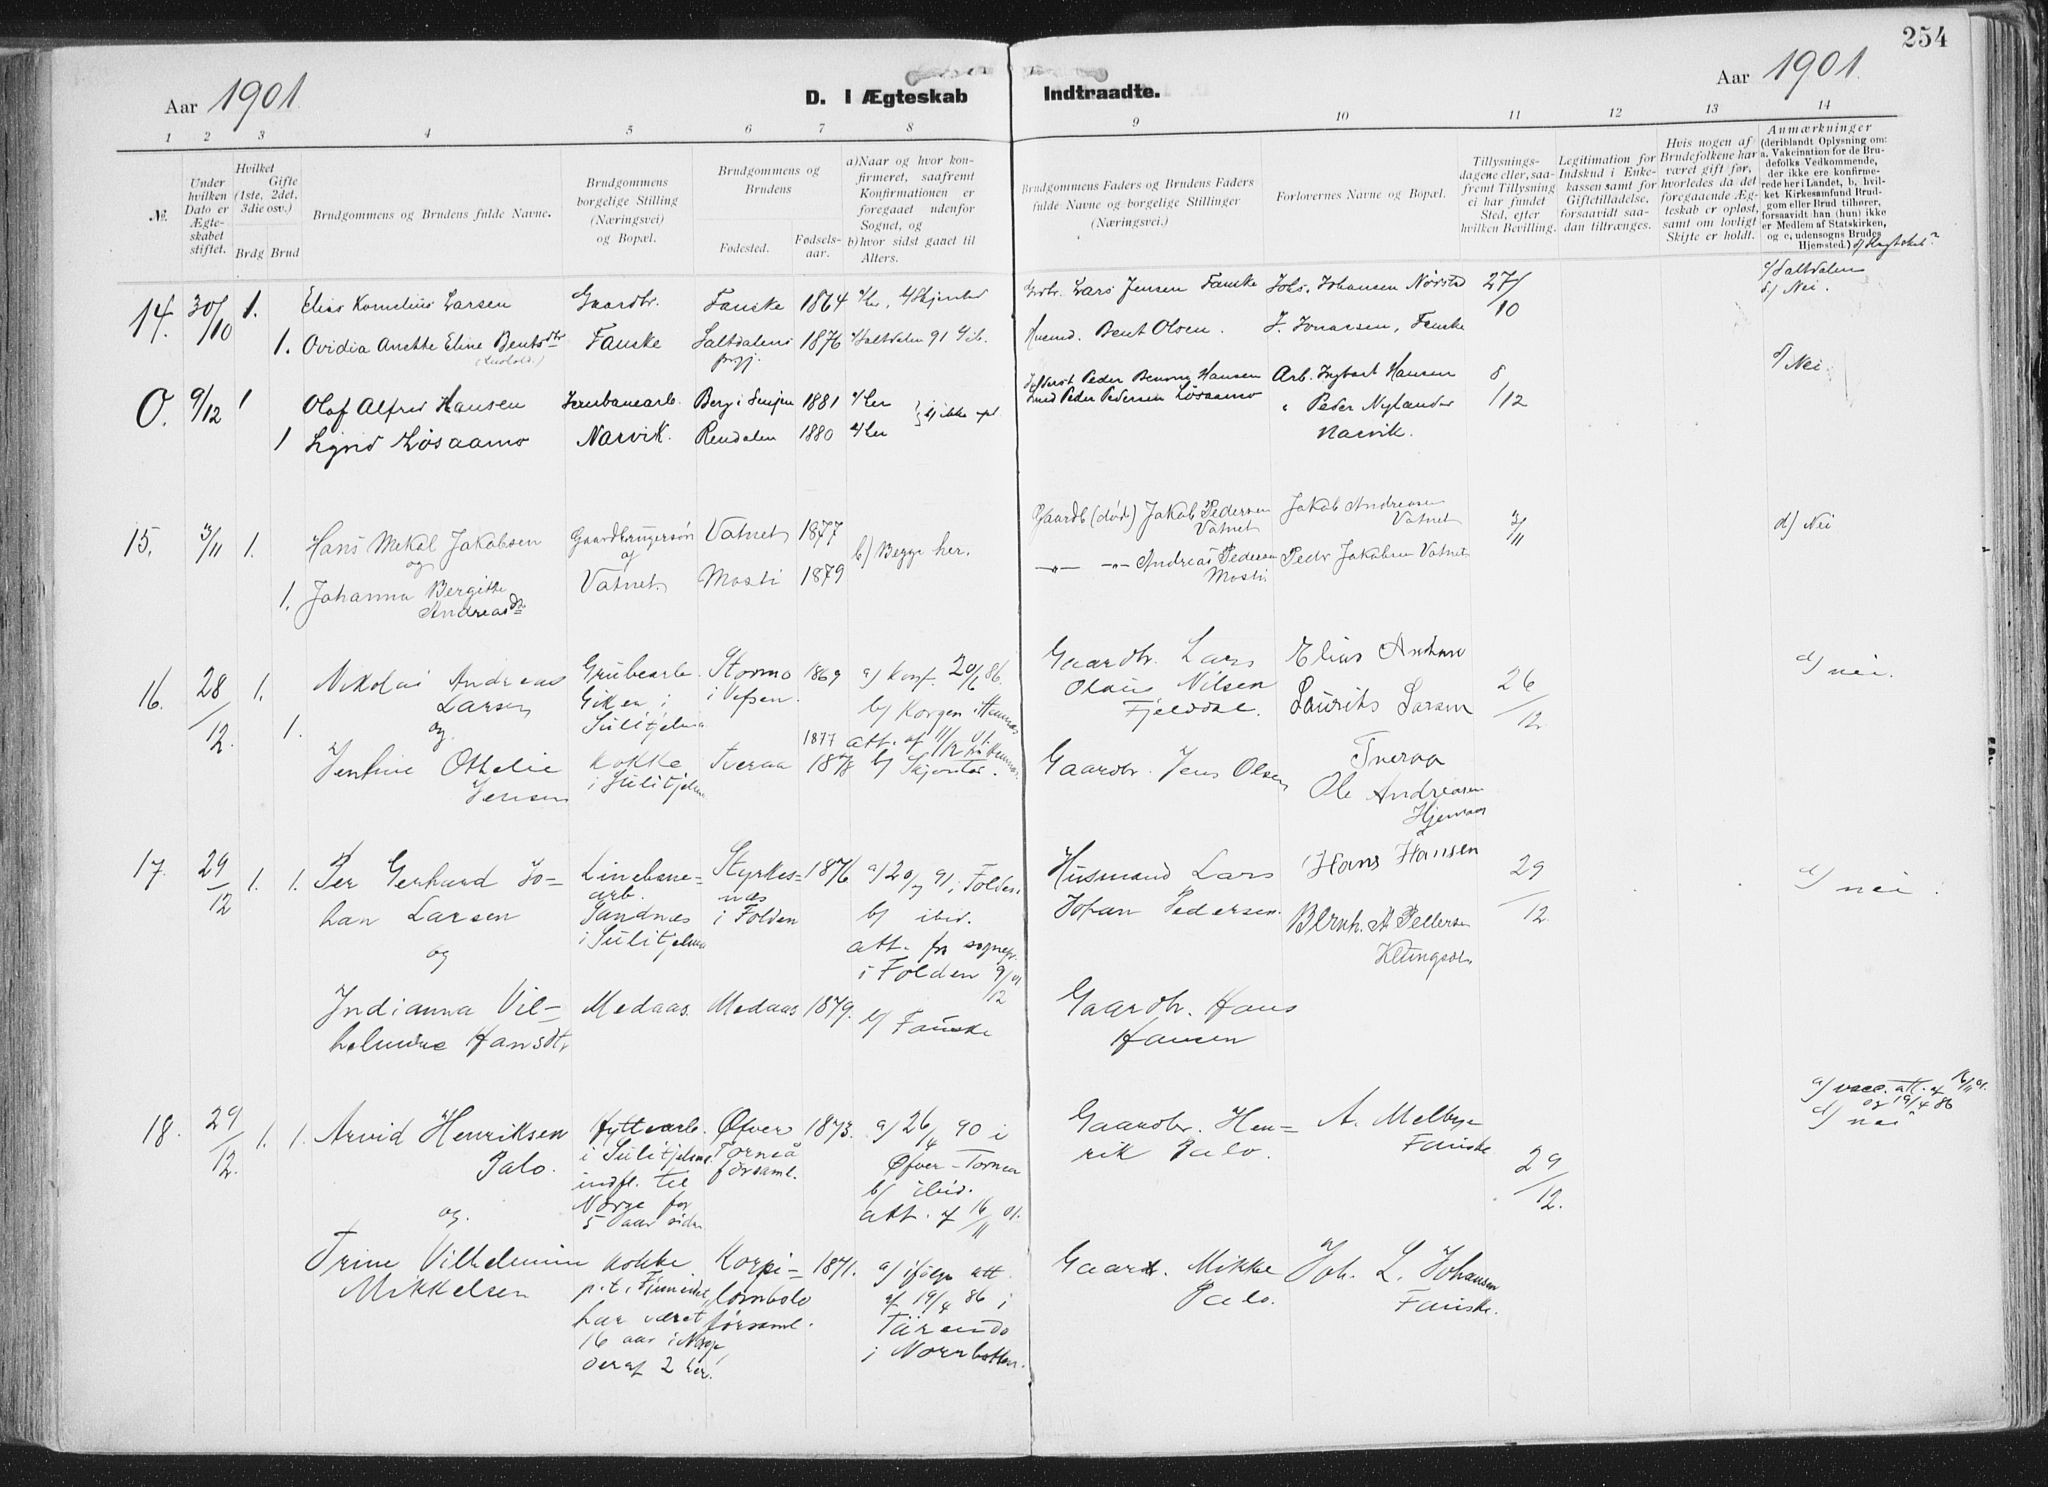 254
Aar 1901
D. I Ægteskab Indtraadte.
Aar 1901.
1 2 3 4 5 6 7 8 9 10 11 12 13 14
№.
Under hvilken Dato er Ægteskabet stiftet.
Hvilket Gifte (1ste, 2det, 3die osv.)
Brdg Brud
Brudgommens og Brudens fulde Navne.
Brudgommens borgelige Stilling (Næringsvei) og Bopæl.
Brudgommens og Brudens
Fødested.
Fødsels-aar.
a) Naar og hvor konfirmeret, saafremt Konfirmationen er foregaaet udenfor Sognet, og
b) hvor sidst gaaet til Alters.
Brudgommens Faders og Brudens Faders fulde Navne og borgelige Stillinger (Næringsvei.)
Forlovernes Navne og Bopæl.
Tillysningsdagene eller, saafremt Tillysning ei har fundet Sted, efter hvilken Bevilling.
Legitimation for Indskud i Enkekassen samt for Giftetilladelse, forsaavidt saadan tiltrænges.
Hvis nogen af Brudefolkene har været gift før, hvorledes da det foregaaende Ægteskab er opløst, samt om lovligt Skifte er holdt.
Anmærkninger (deriblandt Oplysning om: a. Vakcination for de Brudefolks Vedkommende, der ikke ere konfirmerede her i Landet, b. hvilket Kirkesamfund Brudgom eller Brud tilhører, forsaavidt han (hun) ikke er Medlem af Statskirken, og c, udensogns Brudes Hjemsted.)
14. 30/10 1. Elias Kornelius Larsen Gaardbr. Fauske 1864
Lars Jensen Fauske Johs. Johansen 27/10
c/ Saltdalen
d/ Nei.
1. Ovidia Anette Eline Bents dtr Fauske Saltdalens 1876 a/ Saltdalen 91
Bent Olsen. J. Jonassen, Fauske
O. 9/12 1 Olaf Alfred Hansen Jernbanearb. Berg i Senjen 1881 a/ her
Peder Hansen Arb. Ingbart Hansen 8/12
d/ Nei
1 Sigrid Løsaamo Narvik. Rendalen 1880 a/ her
Smed Peder Pedersen Løsaamo " Peder Nylander
Narvik.
15. 3/11 1. Hans Mekal Jakobsen Gaardbrugersøn Vatnet 1877
Gaardb (død) Jakob Pedersen Vatnet Jakob Andreasen Vatnet 3/11
d) Nei
og
b) Begge her.
1. Johanna Bergitte Andreasdtr Vatnet Mosti 1879
Andreas Pedersen Mosti Peder Jakobsen Vatnet
16. 28/12. 1. 1. Nikolai Andreas Larsen Grubearb. Giken i Sulitjelma Stormo i Vefsen. 1869 a) Konf. 20/6 86.
b/ Korgen i Hemnæs
att. af 11/12 01.
Gaardbr. Lars Olaus Nilsen Fjelddal. Elias Antons
Laurits Larsen 26/12.
d/ nei.
og
Jentine Othelie Jensen Kokke i Sulitjelma Tveraa 1877 1878 b/ Skjerstad.
Gaardbr. Jens Olsen Tveraa
Ole Andreasen
17. 29/12 1. 1. Per Gerhard Johan Larsen Linebanearb. Sandnæs i Sulitjelma Styrkesnæs i Folden 1876 a/ 20/7 91 i Folden.
b/ ibid.
att. fra sognepr. i Folden 9/12 01
Husmand Lars Johan Pedersen. Hans Hansen
Bernh. A Pettersen
29/12.
d/ nei.
og
Indianna Vilhelmine Hansdtr Medaas. Medaas 1879. b/ Fauske
Gaardbr. Hans Hansen
18. 29/12. 1. 1. Arvid Henriksen Palo. Hyttearb. i Sulitjelma indfl. til Norge for 5 aar siden Øfver Torneå församl. 1873. a/ 26/4 90 i Øfver-Tornea
b/ ibid.
att. af 16/11 01.
Gaardbr. Henrik Palo. A. Melbye Fauske 29/12.
a/ vacc. att. af 16/11 01.
og 19/4 86
d/ nei
og.
Trine Vilhelmine Mikkelsen Kokke p.t. i har været 16 aar i Norge deraf 2 her. Korpilombolo församl. 1871. a/ ifølge att. af 19/4 86 i Tärendö i Norrbotten.
Gaardr. Mikke Palo. Joh. L. Johansen Fauske.